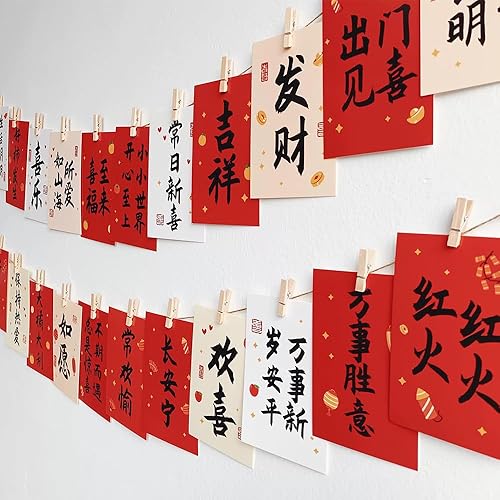 喜乐
所爱
如山海
喜至
福来
小小世界
开心至上
常日新喜
吉祥
发财
出门
见喜
明
保持热爱
如愿
不期而遇
总是惊喜
常欢愉
长安宁
欢喜
万事新
岁安平
万事胜意
红火
红火